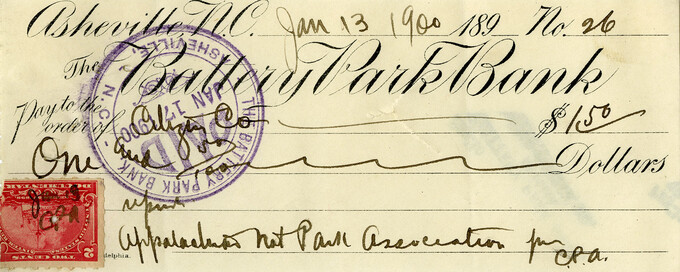 Asheville, N.C. Jan 13 1900 189 No. 26
The Battery Park Bank
Pay to the order of Citizen Co $1.50
One and 50/100 Dollars
Appalachian Nat Park Association per
C.P.A.
THE BATTERY PARK BANK
ASHEVILLE, N.C.
PAID
JAN 17 1900
TWO CENTS
2
DOCUMENTARY
Jan 13
CPA
delphia.